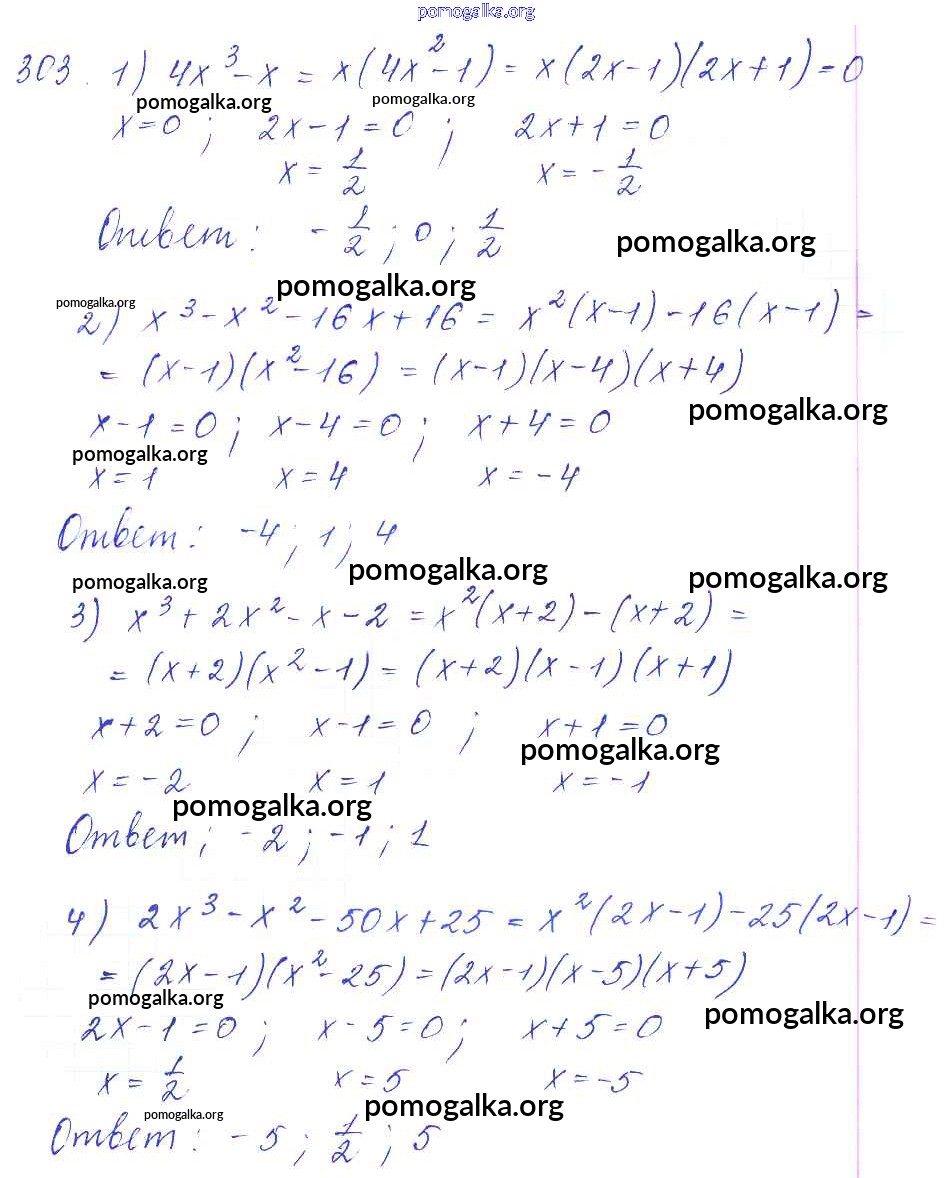 pomogalka.org
303. 1) 4x³ - x = x(4x² - 1) = x(2x - 1)(2x + 1) = 0
pomogalka.org pomogalka.org
x = 0 ; 2x - 1 = 0 ; 2x + 1 = 0
x = 1/2 x = - 1/2
Ответ: - 1/2 ; 0 ; 1/2
pomogalka.org
pomogalka.org
pomogalka.org
2) x³ - x² - 16x + 16 = x²(x - 1) - 16(x - 1) =
= (x - 1)(x² - 16) = (x - 1)(x - 4)(x + 4)
pomogalka.org
x - 1 = 0 ; x - 4 = 0 ; x + 4 = 0
pomogalka.org
x = 1 x = 4 x = -4
Ответ: -4 ; 1 ; 4
pomogalka.org pomogalka.org pomogalka.org
3) x³ + 2x² - x - 2 = x²(x + 2) - (x + 2) =
= (x + 2)(x² - 1) = (x + 2)(x - 1)(x + 1)
x + 2 = 0 ; x - 1 = 0 ; x + 1 = 0
pomogalka.org
x = -2 x = 1 x = -1
pomogalka.org
Ответ: -2 ; -1 ; 1
4) 2x³ - x² - 50x + 25 = x²(2x - 1) - 25(2x - 1) =
= (2x - 1)(x² - 25) = (2x - 1)(x - 5)(x + 5)
pomogalka.org pomogalka.org
2x - 1 = 0 ; x - 5 = 0 ; x + 5 = 0
x = 1/2 x = 5 x = -5
pomogalka.org pomogalka.org
Ответ: -5 ; 1/2 ; 5